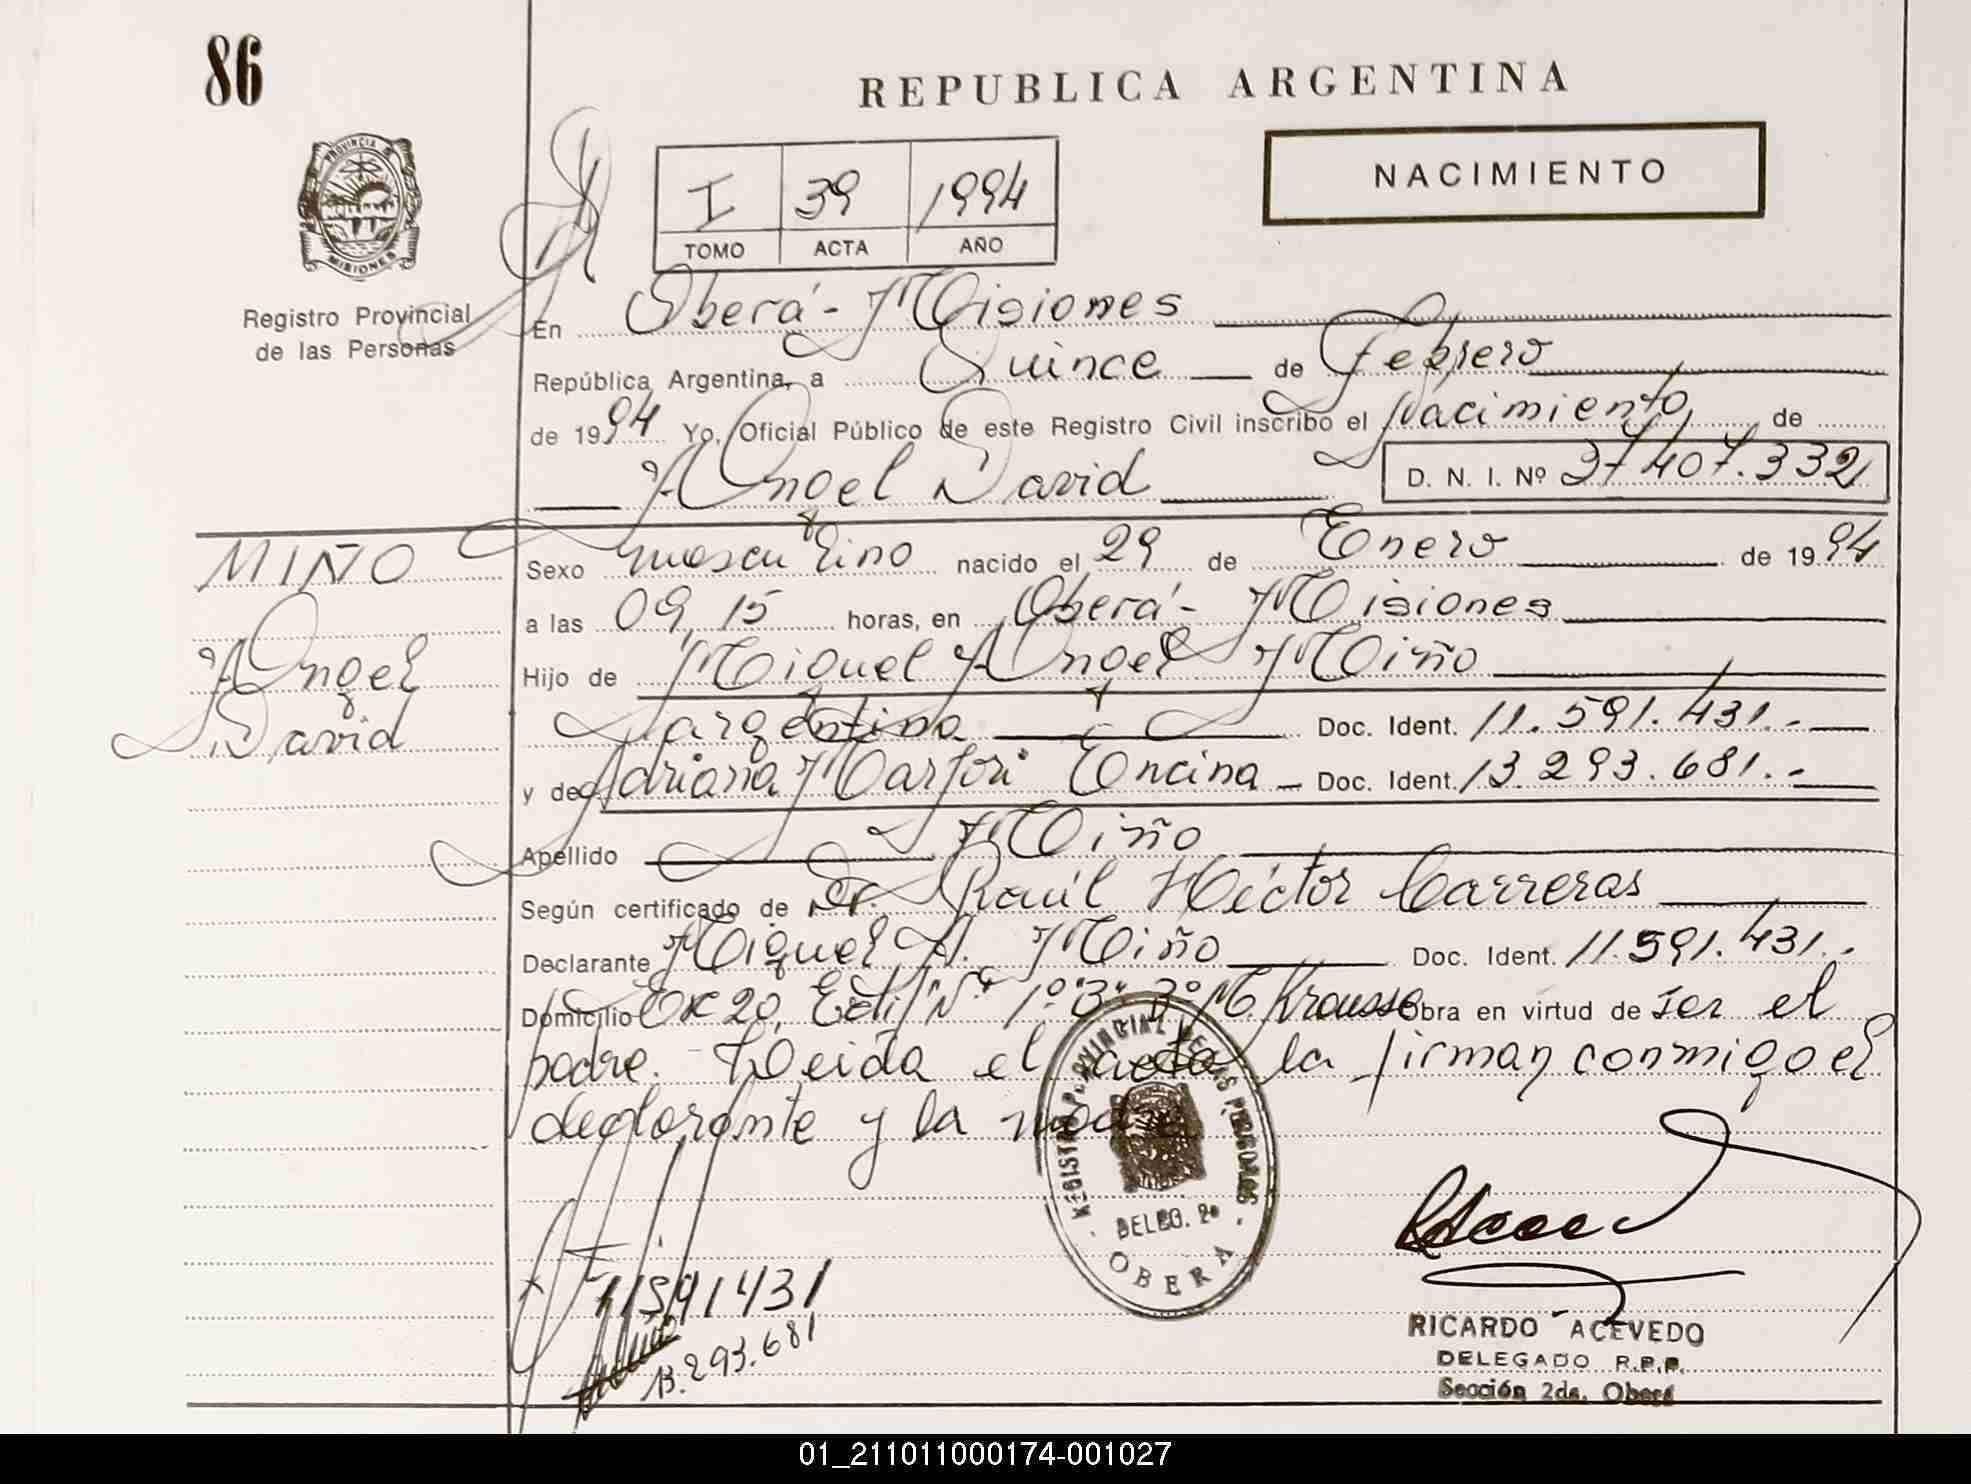 86
REPUBLICA ARGENTINA
I 39 1994
TOMO ACTA AÑO
NACIMIENTO
PROVINCIA D
MISIONES
Registro Provincial
de las Personas
En Oberá - Misiones
República Argentina, a Quince de Febrero
de 1994 Yo, Oficial Público de este Registro Civil inscribo el Nacimiento de
Angel David D. N. I. Nº 37407.332
MIÑO
Angel
David
Sexo masculino nacido el 29 de Enero de 1994
a las 09,15 horas, en Oberá - Misiones
Hijo de Miguel Angel Miño
argentino Doc. Ident. 11.591.431.-
y de Adriana Marfori Encina - Doc. Ident. 13.293.681.-
Apellido Miño
Según certificado de Dr. Raúl Héctor Carreras
Declarante Miguel A. Miño Doc. Ident. 11.591.431.-
Domicilio Ex 20, Edif Nº 1º "3" 3º M. Krausse obra en virtud de ser el
padre. Leida el acta, la firman conmigo el
declarante y la madre
REGISTRO PROVINCIAL DE LAS PERSONAS
DELEG. 2º
OBERA
11591431
13.293.681
RICARDO ACEVEDO
DELEGADO R.P.P.
Sección 2da. Oberá
01_211011000174-001027